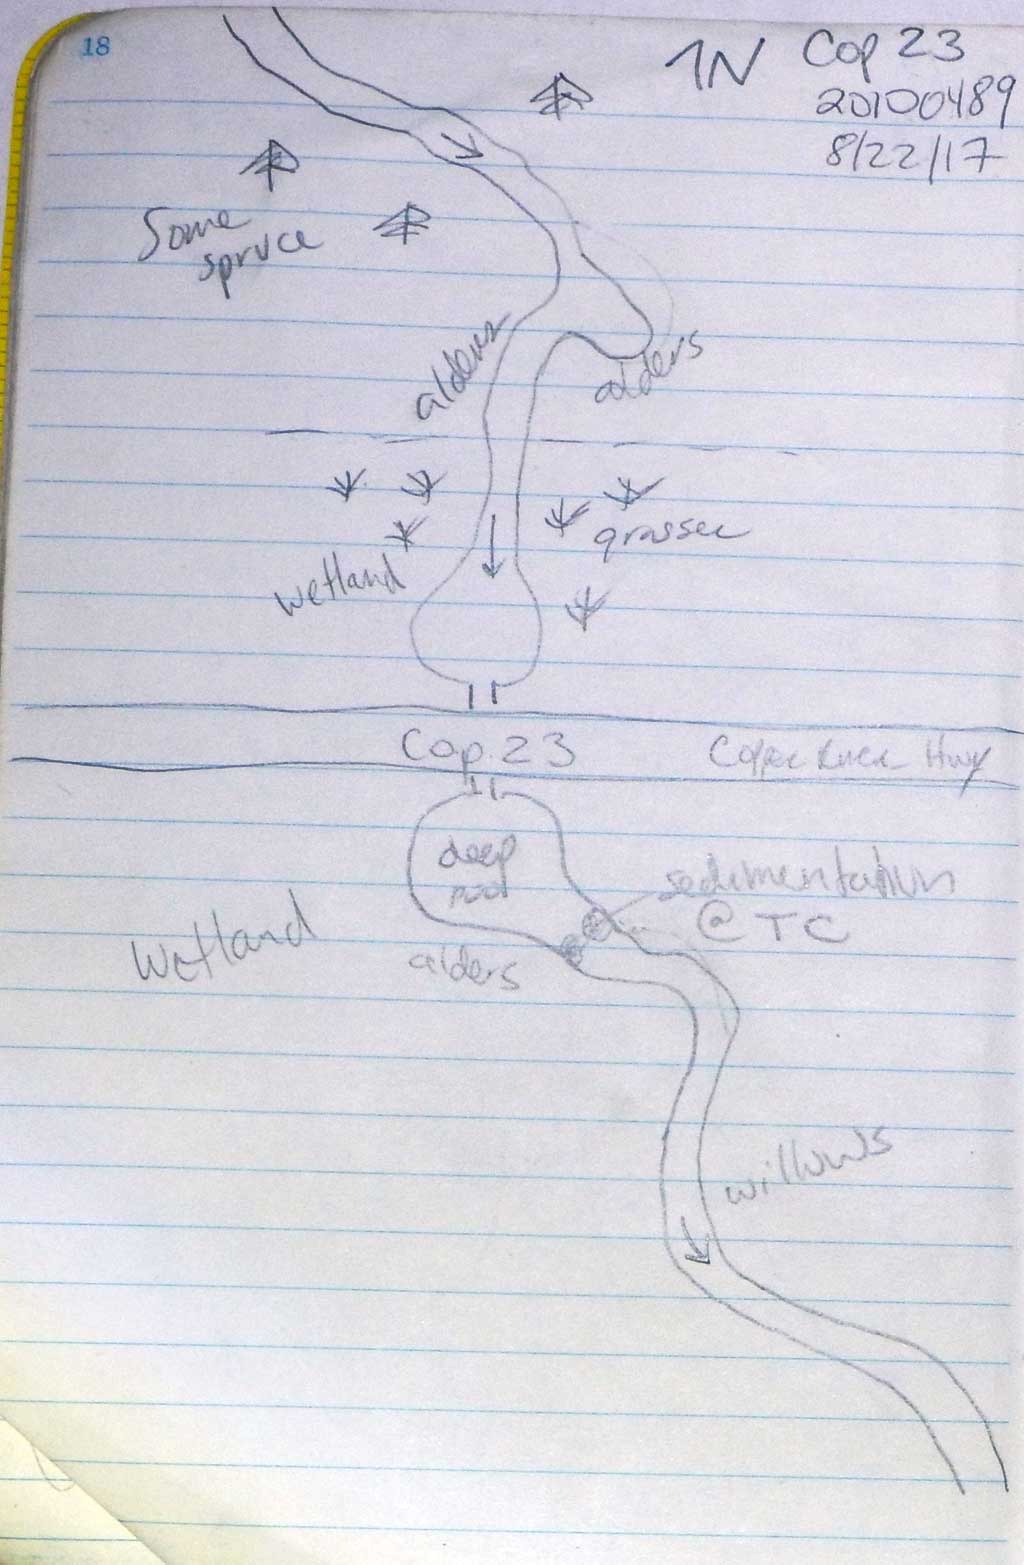 18
↑N Cop 23
20100489
8/22/17
Some
spruce
alders
alders
grasses
wetland
Cop 23
Copper River Hwy
deep
pool
sedimentation
@ TC
Wetland
alders
willows